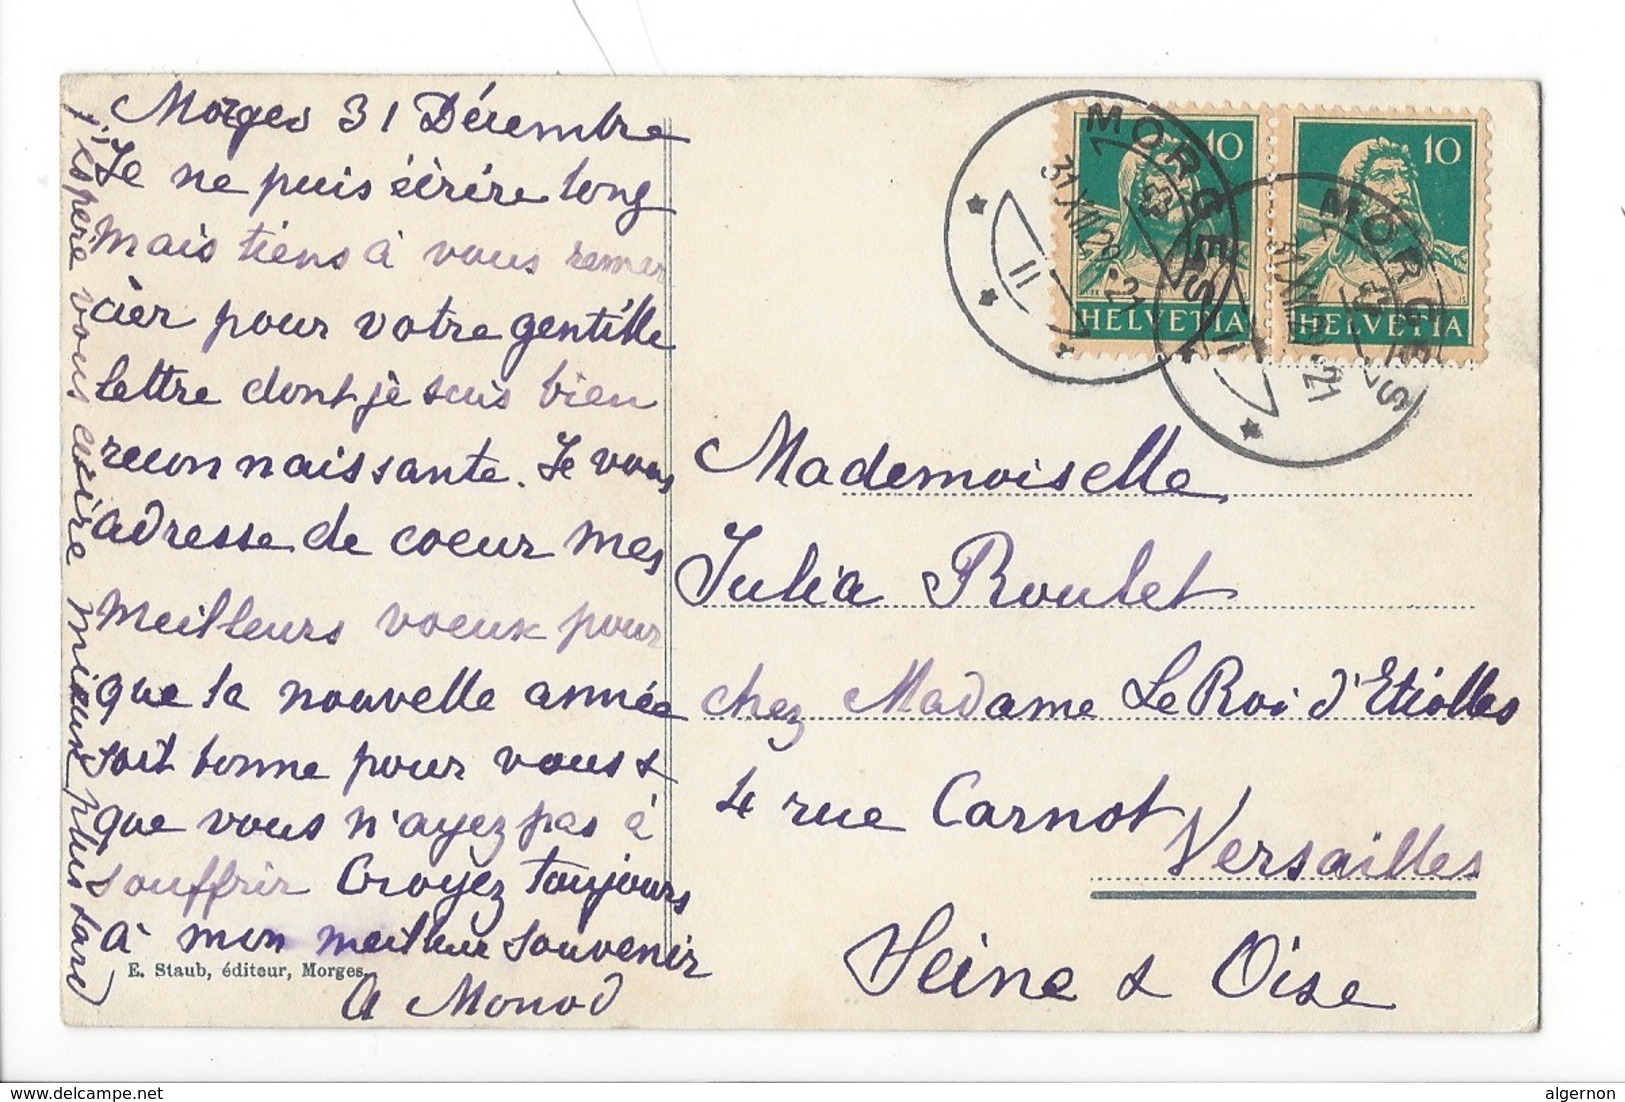 Morges 31 Décembre
Je ne puis écrire long
mais tiens à vous remer
cier pour votre gentille
lettre dont je suis bien
reconnaissante. Je vous
adresse de coeur mes
meilleurs voeux pour
que la nouvelle année
soit bonne pour vous &
que vous n'ayez pas à
souffrir Croyez toujours
à mon meilleur souvenir
A Monod
j'espère vous écrire mieux plus tard
E. Staub, éditeur, Morges.
MORGES
31.XII.28.-21
II
MORGES
31.XII.28.-21
II
10
HELVETIA
10
HELVETIA
Mademoiselle
Julia Roulet
chez Madame Le Roi d'Etiolles
4 rue Carnot
Versailles
Seine & Oise
algernon